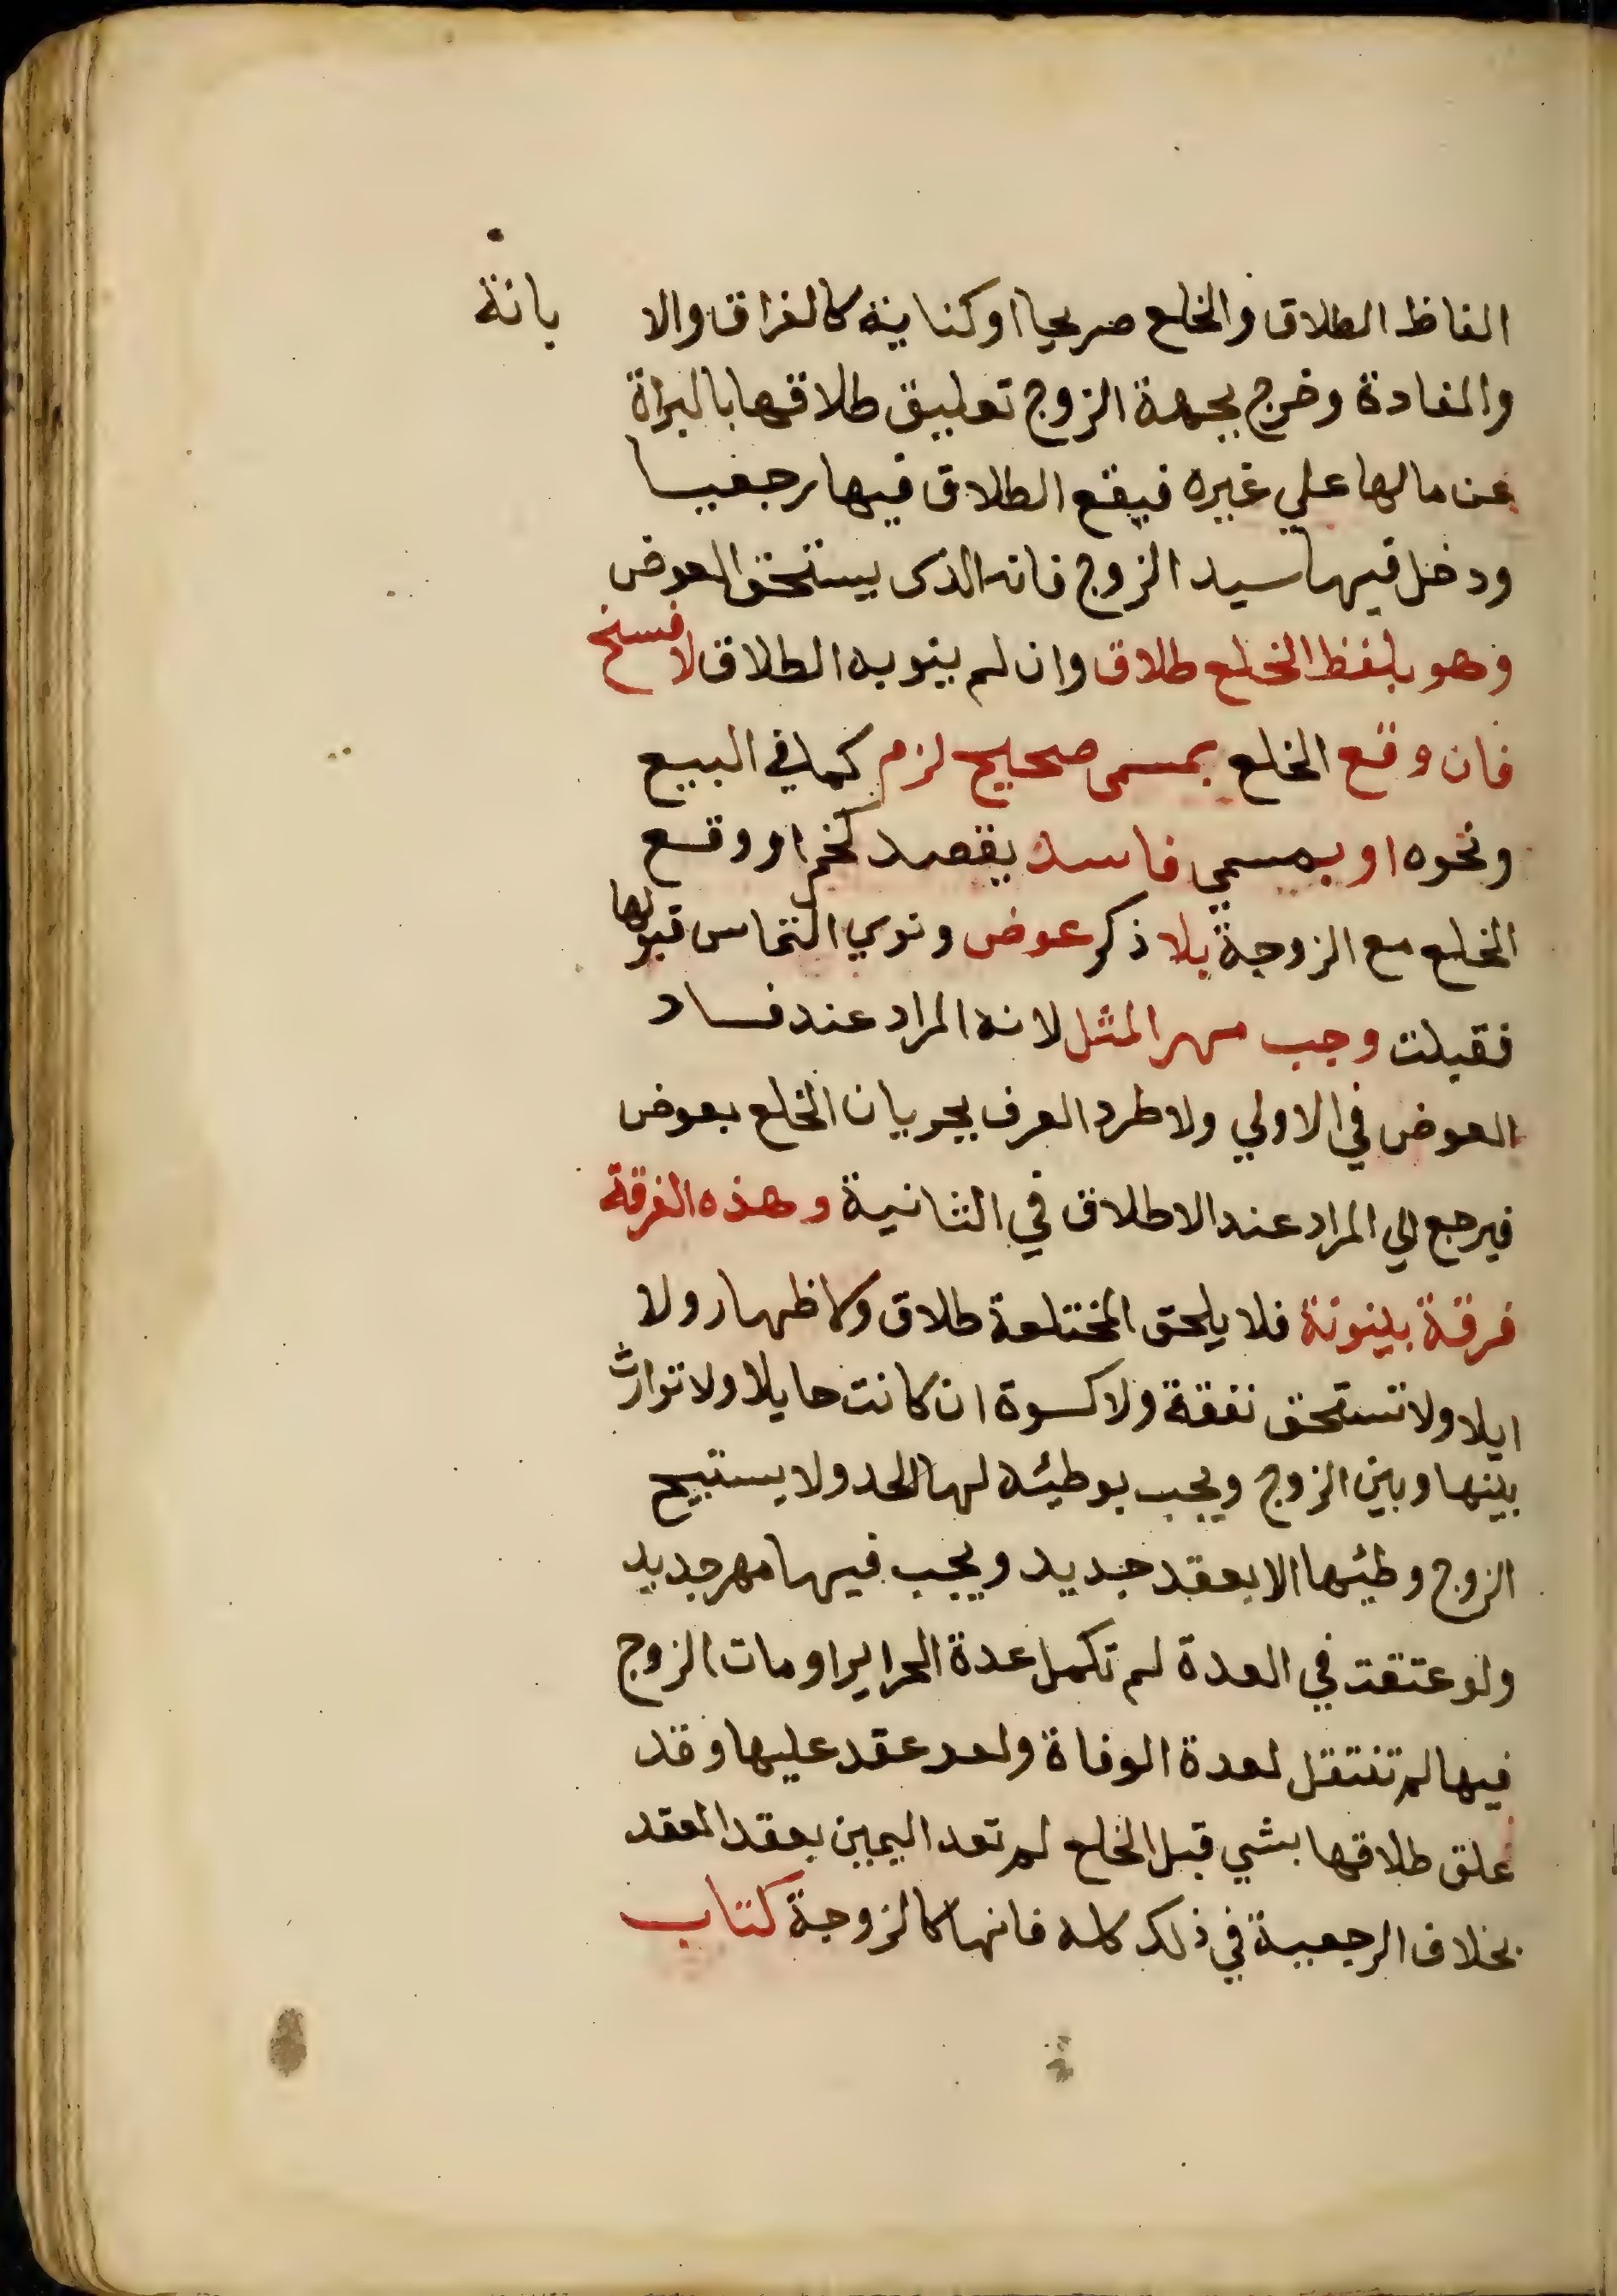 الفاظ الطلاق والخلع صريحا او كناية كالفراق والا بانة
والمفادة وخرج بجهة الزوج تعليق طلاقها بالبراة
عن مالها علي غيره فيقع الطلاق فيها رجعيا
ودخل فيها سيد الزوج فانه الذى يستحق العوض
وهو بلفظ الخلع طلاق وان لم ينو به الطلاق لا فسخ
فان وقع الخلع بمسمى صحيح لزم كما في البيع
ونحوه او بمسمي فاسد يقصد كخمر او وقع
الخلع مع الزوجة بلا ذكر عوض ونوي التماس قبولها
فقبلت وجب مهر المثل لانه المراد عند فساد
العوض في الاولي ولاطرد العرف بجريان الخلع بعوض
فيرجع الي المراد عند الاطلاق في الثانية وهذه الفرقة
فرقة بينونة فلا يلحق المختلعة طلاق ولا ظهار ولا
ايلا ولا تستحق نفقة ولا كسوة ان كانت حايلا ولا توارث
بينها وبين الزوج ويجب بوطئه لها الحد ولا يستبيح
الزوج وطئها الا بعقد جديد ويجب فيها مهر جديد
ولو عتقت في العدة لم تكمل عدة الحراير او مات الزوج
فيها لم تنتقل لعدة الوفاة ولو عقد عليها وقد
علق طلاقها بشي قبل الخلع لم تعد اليمين بعقد العقد
بخلاف الرجعية في ذلك كله فانها كالزوجة كتاب